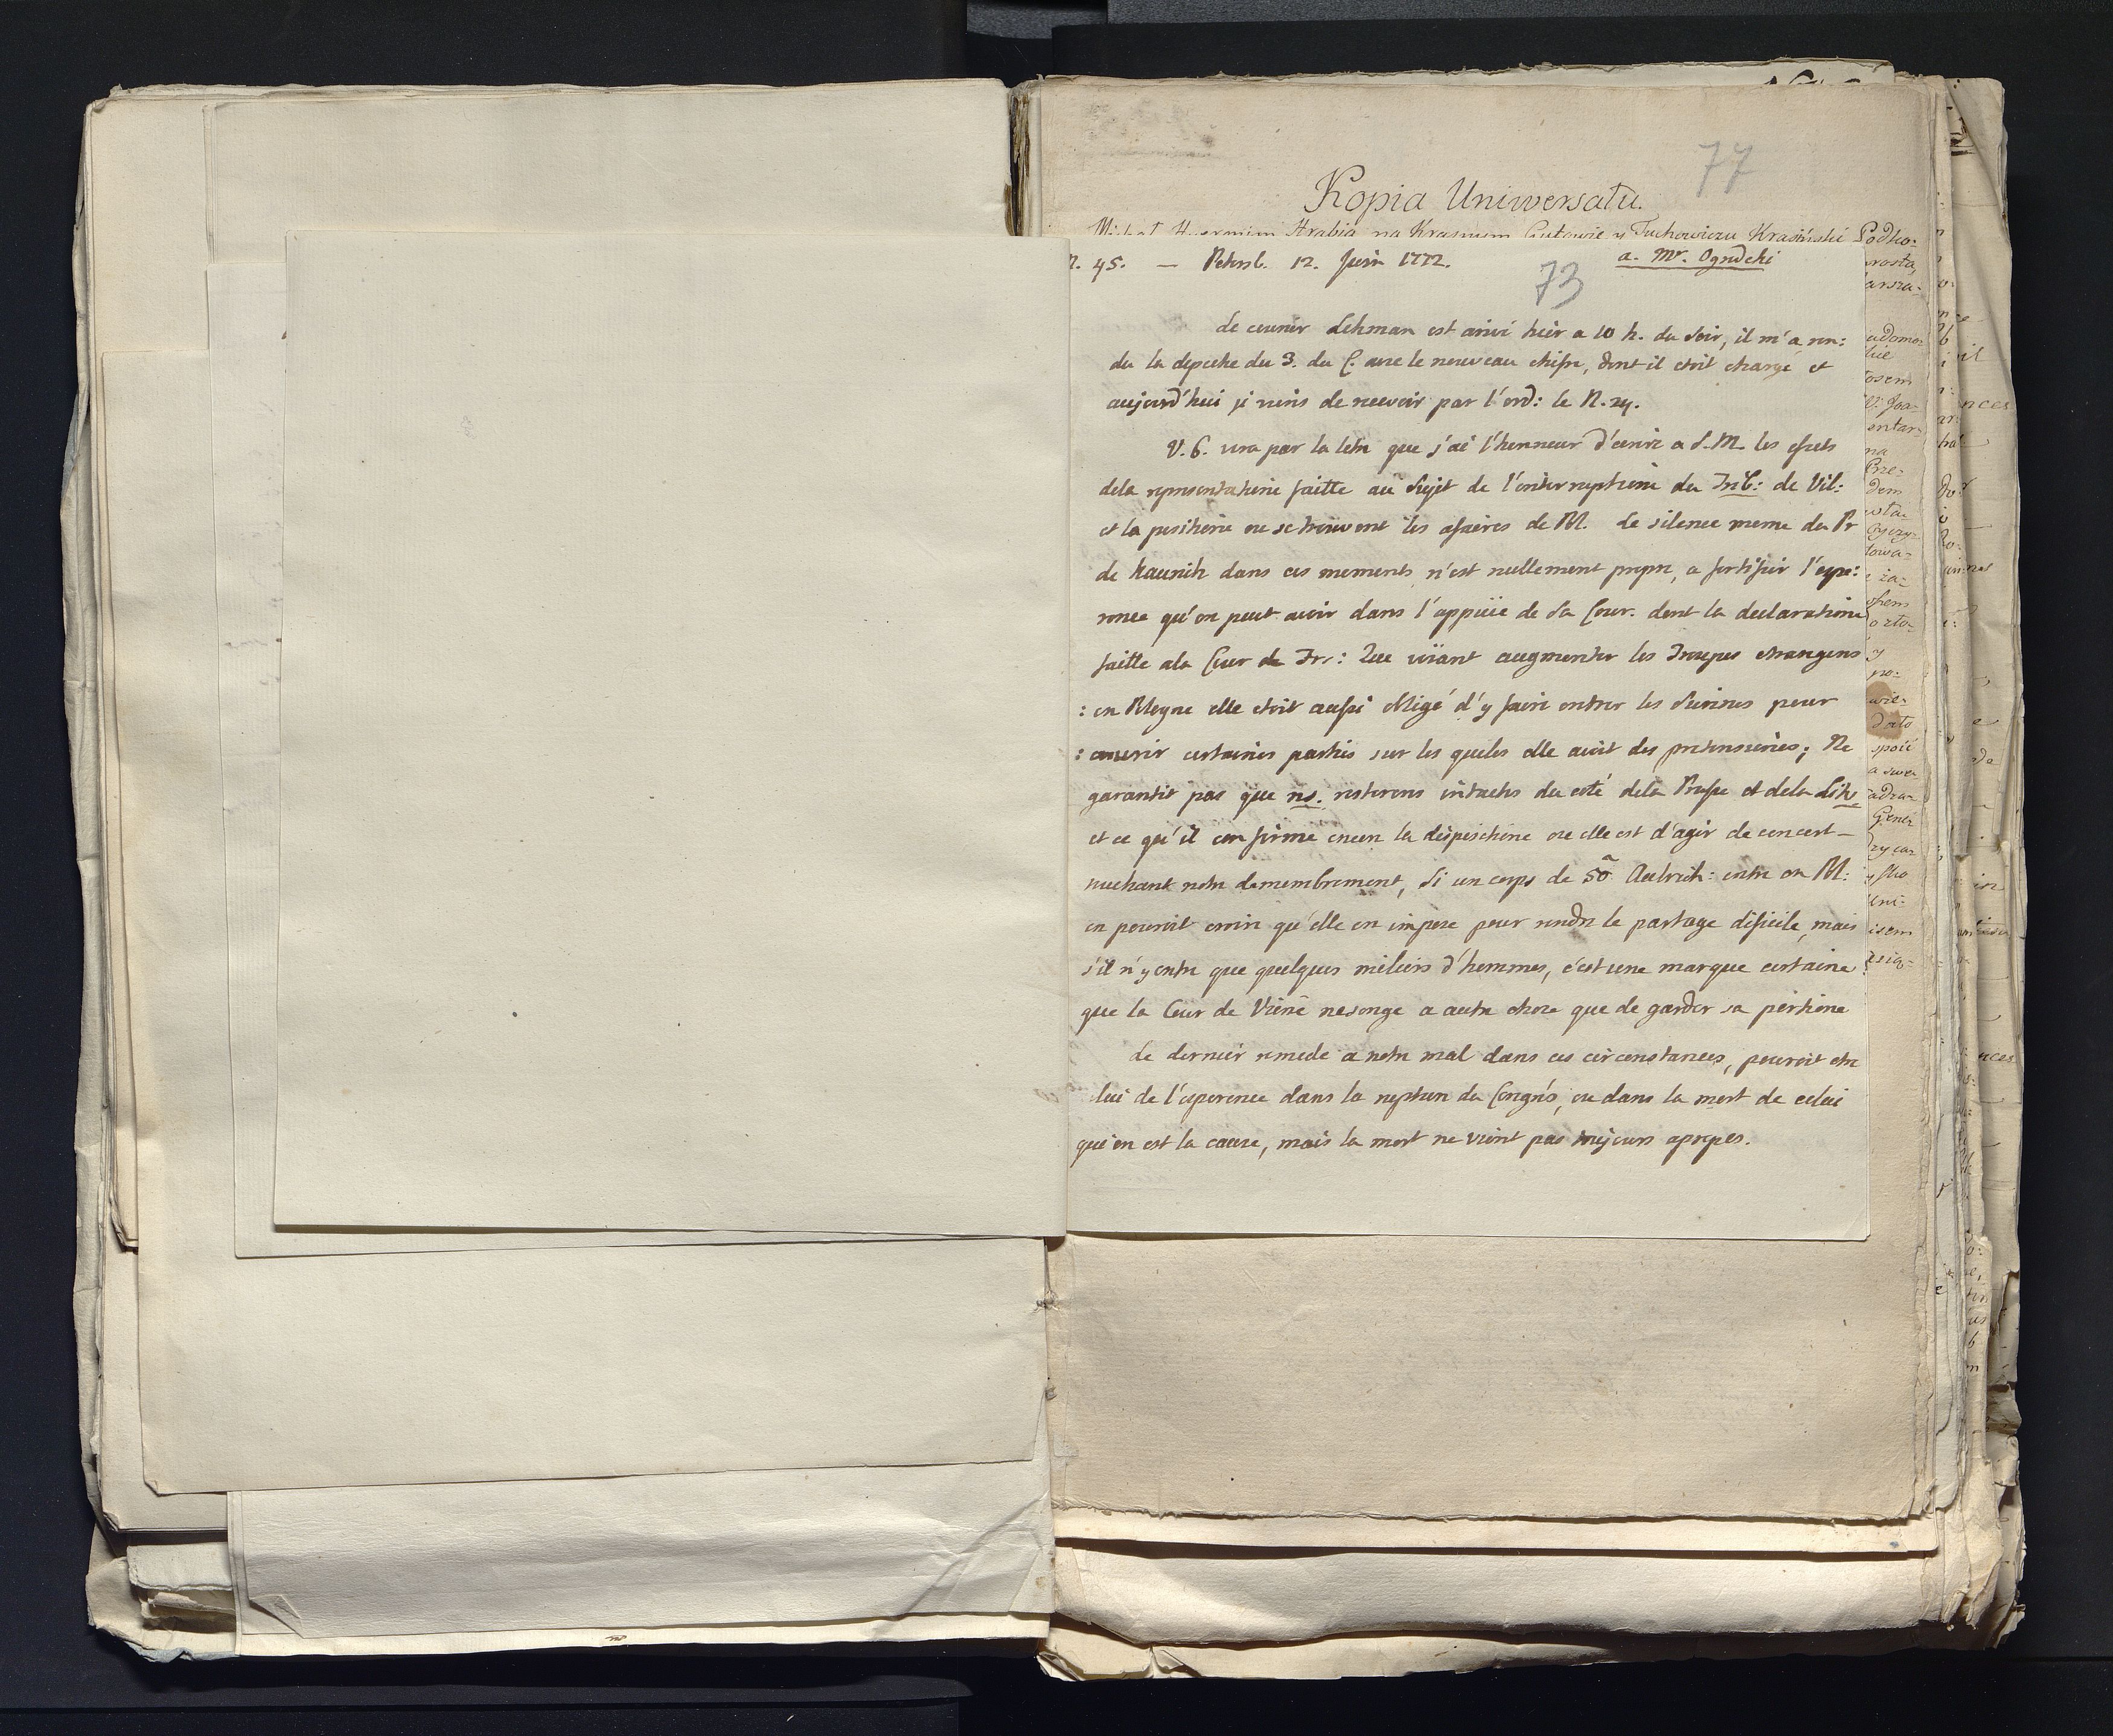 77
Kopia Uniwersału.
N. 45. — Petersb. 12. Juin 1772. a. Mr. Ogrodzki
73
Le courier Lehman est arivé hier a 10 h. du soir, il m'a ren:
du la depeche du 3. du C. avec le nouveau chifre, dont il etoit chargé et
aujourd'hui je viens de recevoir par l'ord: le N. 24.
V. E. vera par la letre que j'ai l'honneur d'ecrire a S. M. les efets
dela representatione faitte au sujet de l'interruptione du Trib: de Vil:
et la positione ou se trouvent les afaires de Pol. Le silence meme du Pr
de Kaunitz dans ces moments, n'est nullement propre, a fortifier l'espe:
rance qu'on peut avoir dans l'appüie de sa Cour. dont la declaratione
faitte ala Cour de Fr: Que voïant augmenter les Troupes etrangeres
: en Pologne elle etoit aussi obligé d'y faire entrer les siennes pour
: couvrir certaines parties sur les queles elle avoit des pretensiones; Ne
garantit pas que ns. resterons intactes du coté dela Prusse et dela Lith
et ce qu'il confirme encor la dispositione ou elle est d'agir de concert —
touchant notre demembrement, Si un corps de 50 Autrich: entre en Pol:
on pouroit croire qu'elle en impose pour rendre le partage dificile, mais
s'il n'y entre que quelques miliers d'hommes, c'est une marque certaine
que la Cour de Viene ne songe a autre chose que de garder sa portione
Le dernier remede a notre mal dans ces circonstances, pouroit etre
lui de l'esperence dans la rupture du Congrés, ou dans la mort de celui
qui en est la cause, mais la mort ne vient pas toujours apropos.